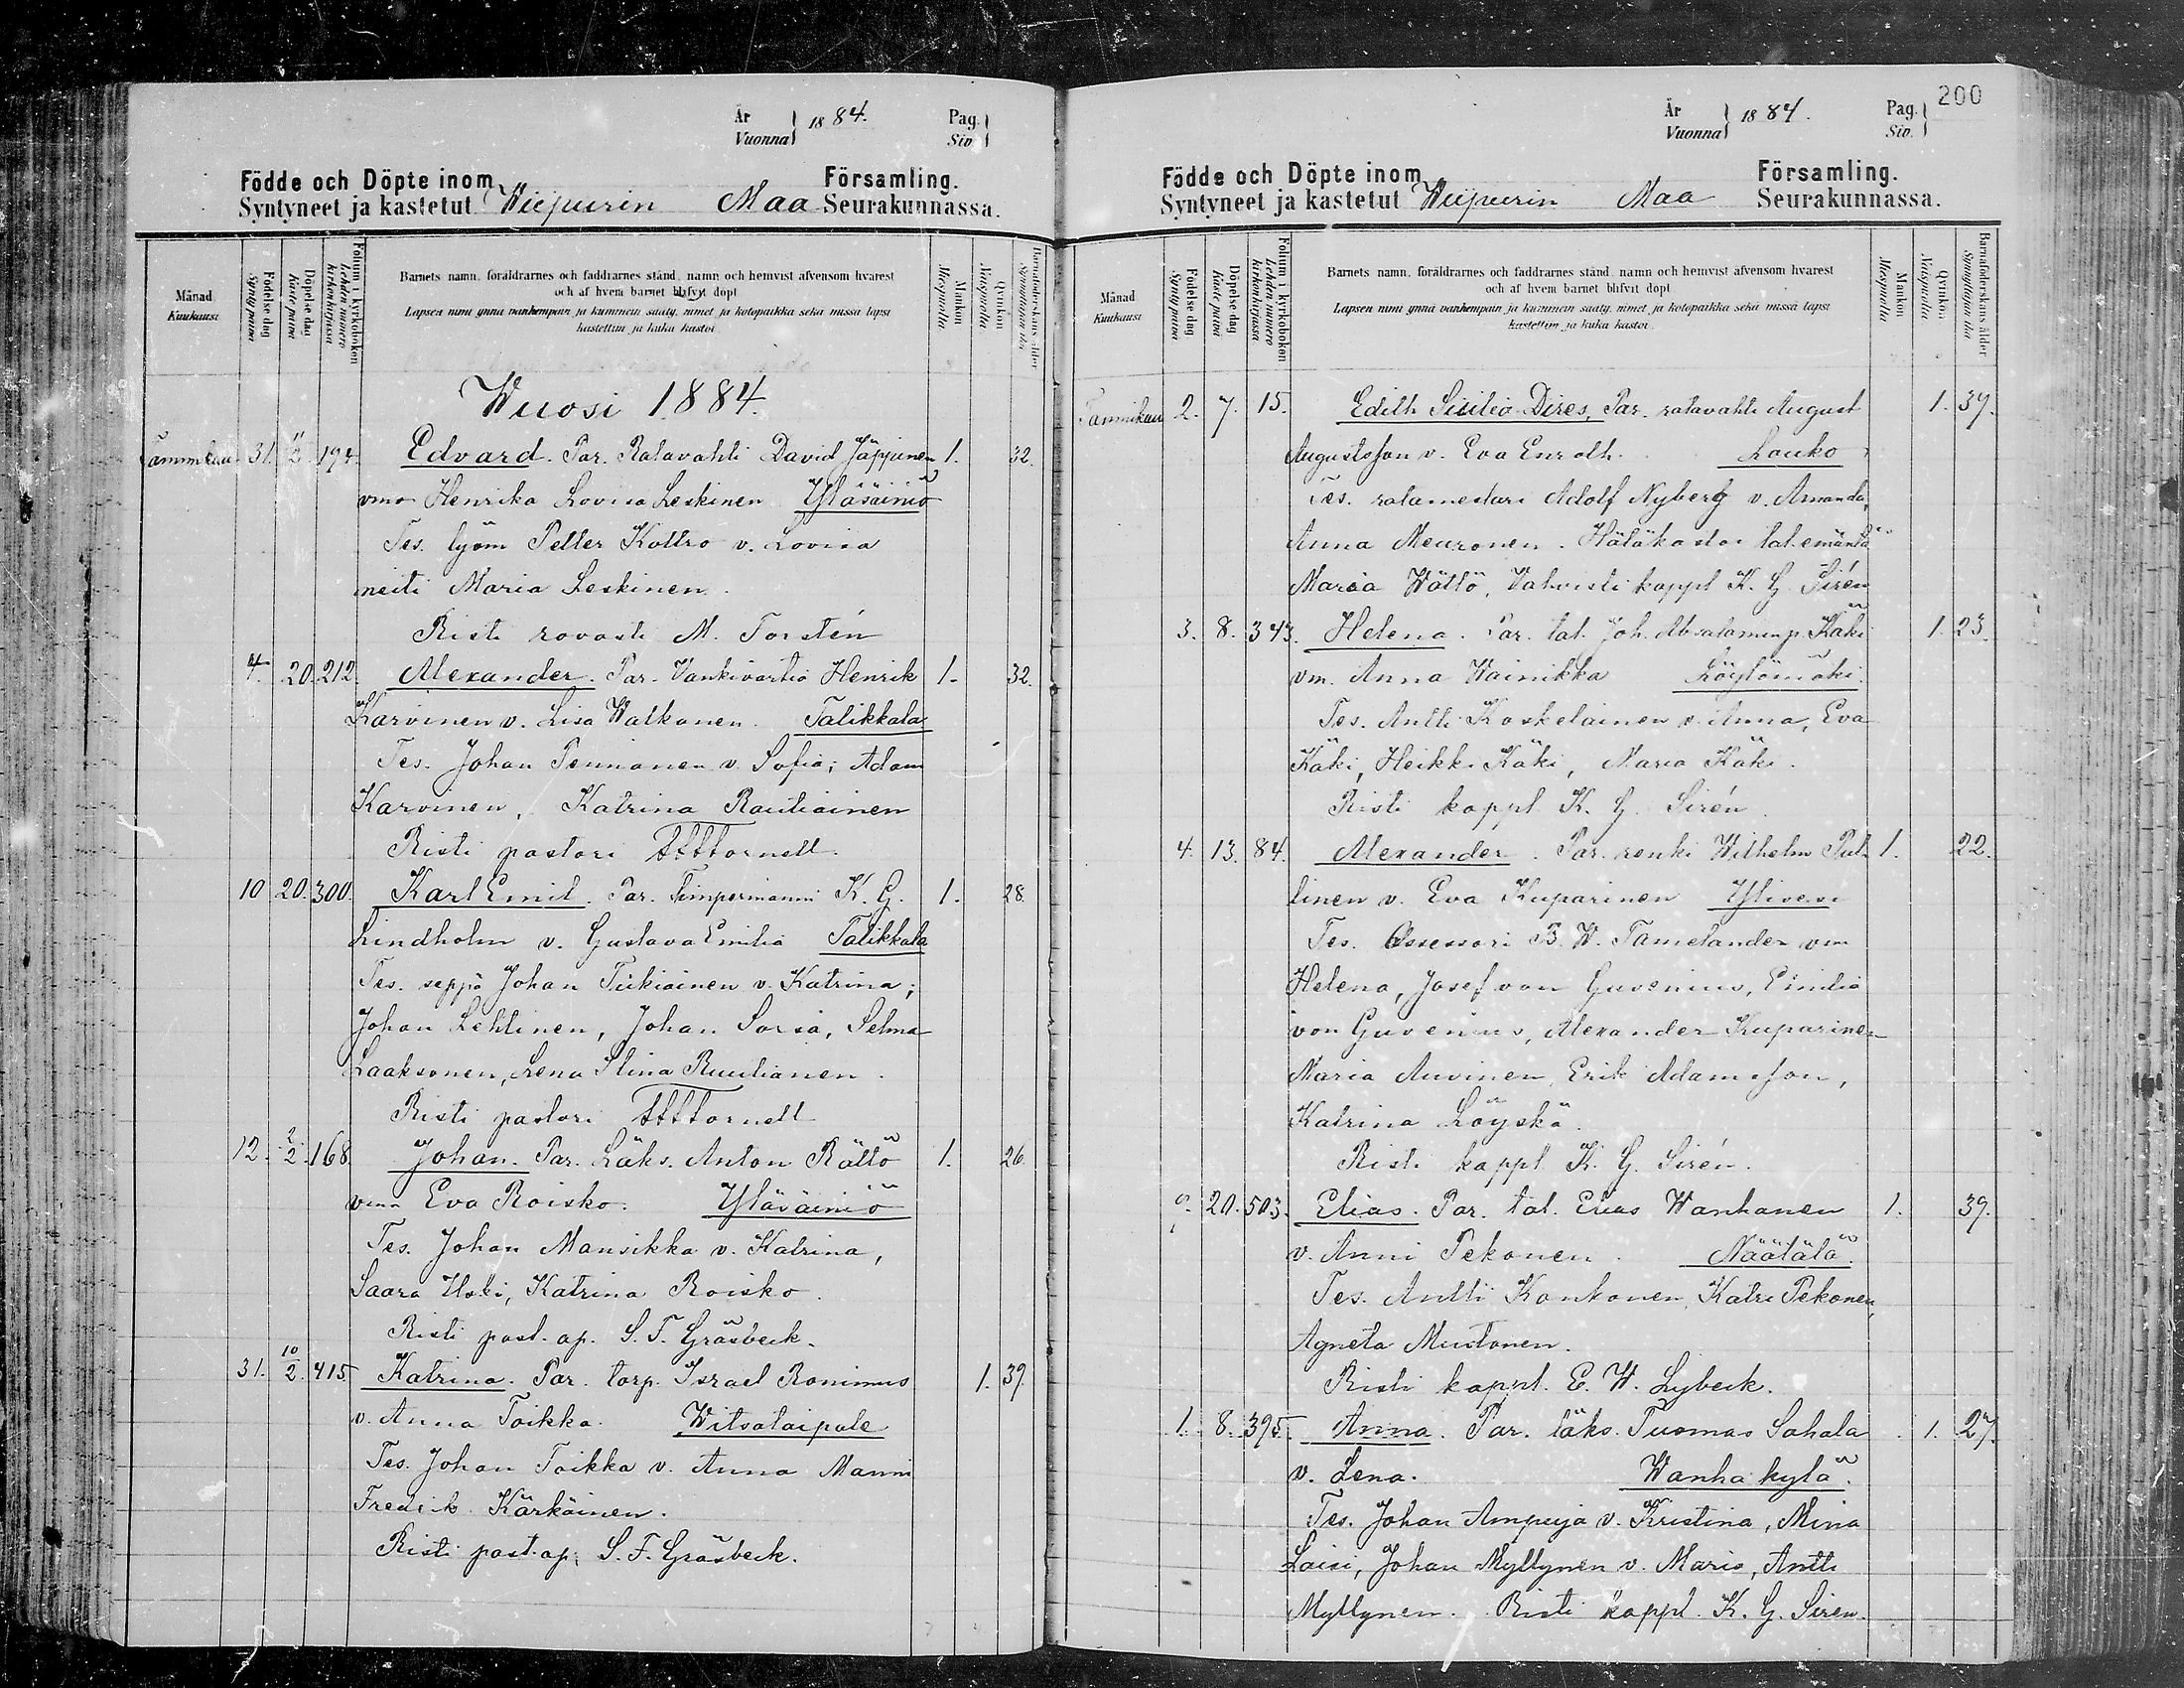 År
Vuonna } 1884.
Pag.
Siv. }
Födde och Döpte inom Församling.
Syntyneet ja kastetut Wiipurin Maa Seurakunnassa.
Månad
Kuukausi
Födelse dag
Syntypäivä
Döpelse dag
Kastepäivä
Folium i kyrkoboken
Lehden numero
kirkonkirjassa
Barnets namn, föräldrarnes och faddrarnes stånd, namn och hemvist äfvensom hvarest
och af hvem barnet blifvit döpt
Lapsen nimi ynnä vanhempain ja kummein sääty, nimet ja kotopaikka sekä missä lapsi
kastettiin ja kuka kastoi.
Mankön
Miespuolia
Qvinkön
Naispuolia
Barnaföderskans ålder
Synnyttäjän ikä
Wuosi 1884.
Tammikuu 31. 11/2 194. Edvard. Par. Ratavahti David Jäppinen 1. 32.
vmo Henrika Lovisa Leskinen Yläsäiniö
Tes. työm Petter Kottro v. Lovisa
neiti Maria Leskinen.
Risti rovasti M. Forstén
4. 20. 212. Alexander. Par. Vankivartia Henrik 1. 32.
Karvinen v. Lisa Walkonen. Talikkala
Tes. Johan Pennanen v. Sofia; Adam
Karvinen, Katrina Rautiainen
Risti pastori
10 20. 300. Karl Emil. Par. Timpermanni K. G. 1. 28.
Lindholm v. Gustava Emilia Talikkala
Tes. seppä Johan Tiikiainen v. Katrina;
Johan Lehtinen, Johan Sorsa, Selma
Laaksonen, Lena Stina Ruutianen.
Risti pastori
12. 2/2. 168. Johan. Par. Läks. Anton Rättö 1. 26.
vmo Eva Roisko. Yläsäiniö
Tes. Johan Mansikka v. Katrina,
Saara Uski, Katrina Roisko.
Risti past. ap. S. F. Gräsbeck.
31. 10/2. 415 Katrina. Par. torp. Israel Ronimus 1. 39.
v. Anna Toikka. Witsataipale
Tes. Johan Toikka v. Anna Manni
Fredrik Kärkäinen.
Risti past. ap. S. F. Gräsbeck.
200
År
Vuonna } 1884.
Pag.
Siv. }
Födde och Döpte inom Församling.
Syntyneet ja kastetut Wiipurin Maa Seurakunnassa.
Månad
Kuukausi
Födelse dag
Syntypäivä
Döpelse dag
Kastepäivä
Folium i kyrkoboken
Lehden numero
kirkonkirjassa
Barnets namn, föräldrarnes och faddrarnes stånd, namn och hemvist äfvensom hvarest
och af hvem barnet blifvit döpt
Lapsen nimi ynnä vanhempain ja kummein sääty, nimet ja kotopaikka sekä missä lapsi
kastettiin ja kuka kastoi.
Mankön
Miespuolia
Qvinkön
Naispuolia
Barnaföderskans ålder
Synnyttäjän ikä
Tammikuu 2. 7. 15. Edith Sisilia Dires, Par. ratavahti August 1. 39.
Augustsson v. Eva Enroth. Louko
Tes. ratamestari Adolf Nyberg v. Amanda,
Anna Meuronen. Hätäkastoi tal. emäntä
Maria Wättö, Vahvisti kappl K. G. Sirén
3. 8. 343. Helena. Par. tal. Joh. Absalomin p. Käki 1. 23.
vm. Anna Wainikka Löytömäki.
Tes. Antti Koskelainen v. Anna, Eva
Käki, Heikki Käki, Maria Käki.
Risti kappl K. G. Sirén
4. 13. 84. Alexander. Par. renki Wilhelm Pul- 1. 22.
linen v. Eva Kuparinen Ylivesi
Tes. Assessori B. W. Tamelander vm
Helena, Josef von Guvenius, Emilia
von Guvenius, Alexander Kuparinen
Maria Auvinen, Erik Adamsson,
Katrina Löyskä.
Risti kappl K. G. Sirén.
9. 20. 503. Elias. Par. tal. Elias Wanhanen 1. 39.
v. Anni Pekonen. Näätälä.
Tes. Antti Konkonen, Katri Pekonen,
Agneta Mustonen.
Risti kappl. E. W. Lybeck.
1. 8. 395. Anna. Par. läks. Tuomas Sahala 1. 27.
v. Lena. Wanhakylä.
Tes. Johan Ampuja v. Kristina, Mina
Laisi, Johan Myllynen v. Maria, Antti
Myllynen. Risti kappl. K. G. Siren.